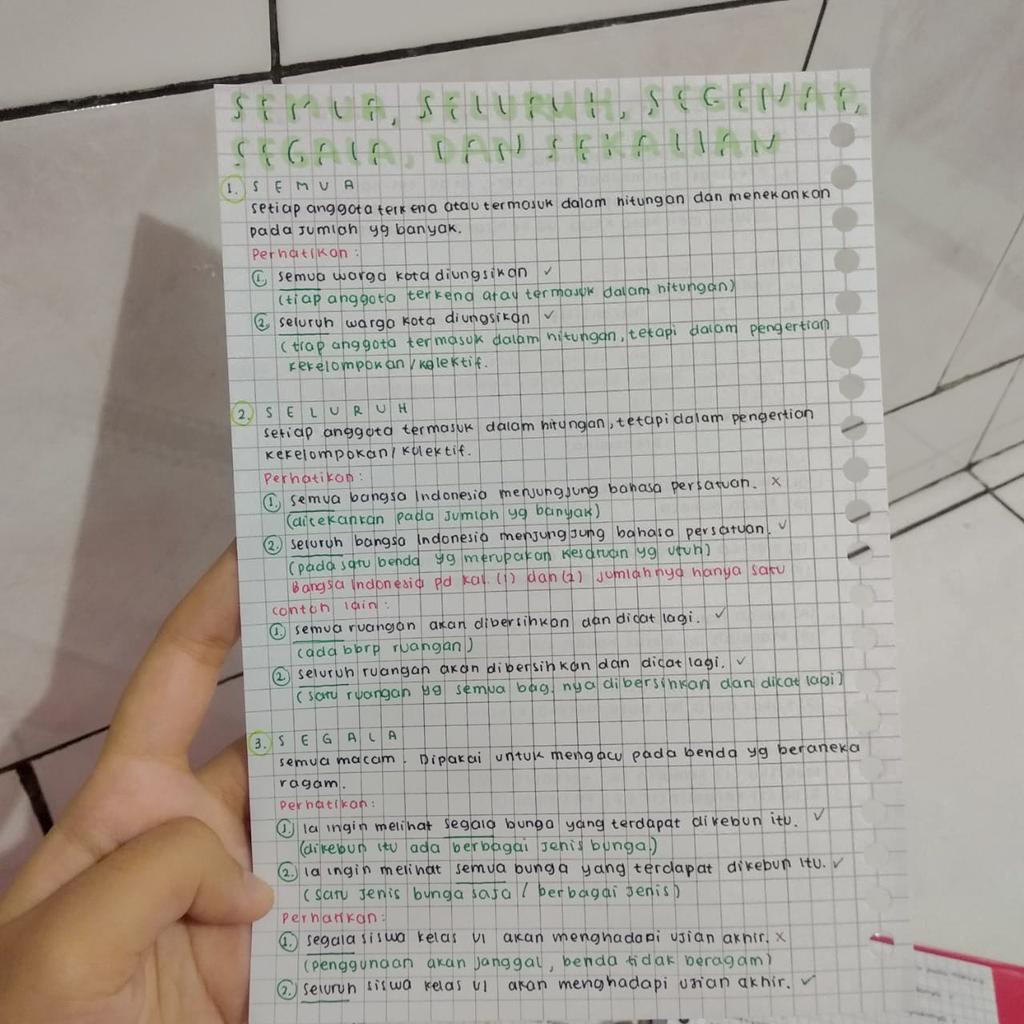 SEMUA, SELURUH, SEGENAP,
SEGALA, DAN SEKALIAN
1. SEMUA
setiap anggota terkena atau termasuk dalam hitungan dan menekankan
pada jumlah yg banyak.
Perhatikan:
1. semua warga kota diungsikan ✓
(tiap anggota terkena atau termasuk dalam hitungan)
2. seluruh warga kota diungsikan ✓
(tiap anggota termasuk dalam hitungan, tetapi dalam pengertian
kekelompokan/kolektif.
2. SELURUH
setiap anggota termasuk dalam hitungan, tetapi dalam pengertian
kekelompokan/kolektif.
Perhatikan:
1. semua bangsa Indonesia menjungjung bahasa persatuan. x
(ditekankan pada jumlah yg banyak)
2. seluruh bangsa Indonesia menjungjung bahasa persatuan. ✓
(pada satu benda yg merupakan kesatuan yg utuh)
Bangsa Indonesia pd kal. (1) dan (2) jumlahnya hanya satu
contoh lain:
1. semua ruangan akan dibersihkan dan dicat lagi. ✓
(ada bbrp ruangan)
2. seluruh ruangan akan dibersihkan dan dicat lagi. ✓
(satu ruangan yg semua bag. nya dibersihkan dan dicat lagi)
3. SEGALA
semua macam. Dipakai untuk mengacu pada benda yg beraneka
ragam.
Perhatikan:
1. Ia ingin melihat segala bunga yang terdapat dikebun itu. ✓
(dikebun itu ada berbagai jenis bunga.)
2. Ia ingin melihat semua bunga yang terdapat dikebun itu. ✓
(satu jenis bunga saja / berbagai jenis)
Perhatikan:
1. segala siswa kelas VI akan menghadapi ujian akhir. x
(penggunaan akan janggal, benda tidak beragam)
2. seluruh siswa kelas VI akan menghadapi ujian akhir. ✓